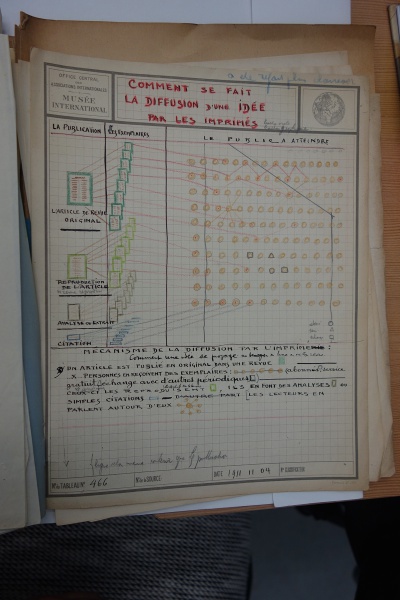 OFFICE CENTRAL
DES
ASSOCIATIONS INTERNATIONALES
MUSÉE
INTERNATIONAL
COMMENT SE FAIT
LA DIFFUSION D'UNE IDÉE
PAR LES IMPRIMÉS
LA PUBLICATION
LES EXEMPLAIRES
LE PUBLIC A ATTEINDRE
L'ARTICLE DE REVUE
ORIGINAL
REPRODUCTION
DE L'ARTICLE
ANALYSE OU EXTRAIT
CITATION
MÉCANISME DE LA DIFFUSION PAR L'IMPRIMERIE
Comment une idée de
UN ARTICLE EST PUBLIÉ EN ORIGINAL DANS UNE REVUE
X PERSONNES EN REÇOIVENT DES EXEMPLAIRES: (abonné, service
gratuit, échange avec d'autres périodiques)
CEUX-CI LES REPRODUISENT, ILS EN FONT DES ANALYSES OU
SIMPLES CITATIONS D'AUTRE PART LES LECTEURS EN
PARLENT AUTOUR D'EUX
N° DU TABLEAU: 466
DATE 1911 11 04